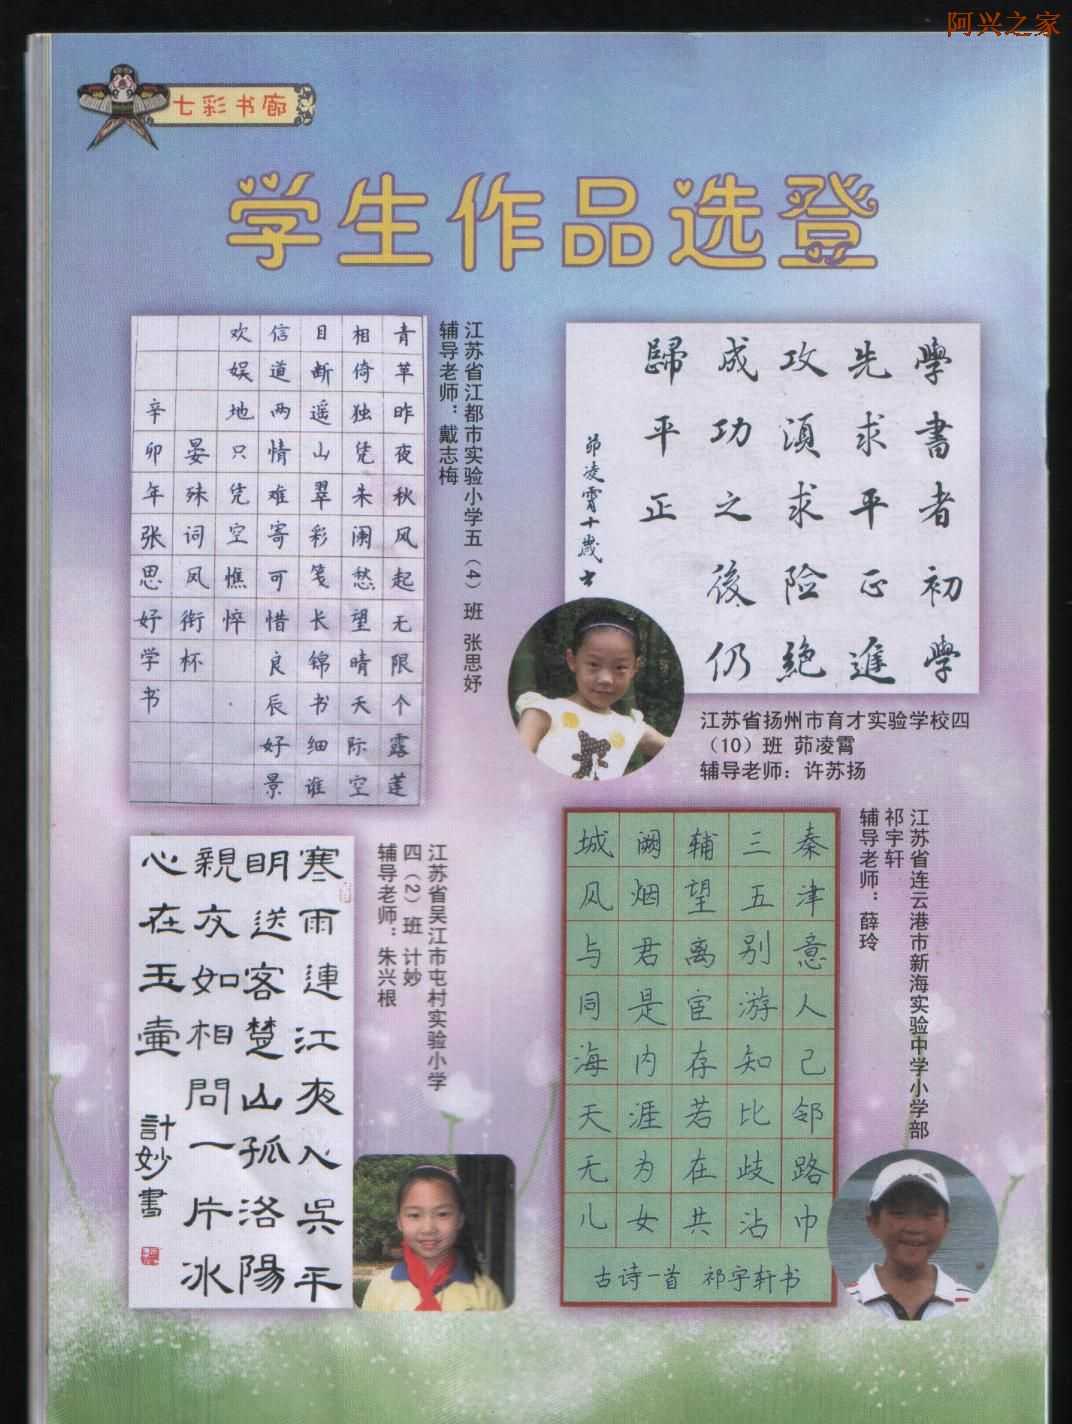 阿兴之家
七彩书廊
学生作品选登
青苹昨夜秋风起无限个露莲
相倚独凭朱阑愁望晴天际空
目断遥山翠彩笺长锦书细谁
信道两情难寄可惜良辰好景
欢娱地只凭空憔悴
晏殊词凤衔杯
辛卯年张思妤学书
江苏省江都市实验小学五（4）班 张思妤
辅导老师：戴志梅
學書者初學
先求平正進
攻須求险絶
成功之後仍
歸平正
茆凌霄十歲书
江苏省扬州市育才实验学校四
（10）班 茆凌霄
辅导老师：许苏扬
寒雨連江夜入吳平
明送客楚山孤洛陽
親友如相問一片冰
心在玉壺
計妙書
江苏省吴江市屯村实验小学
四（2）班 计妙
辅导老师：朱兴根
城阙辅三秦
风烟望五津
与君离别意
同是宦游人
海内存知己
天涯若比邻
无为在歧路
儿女共沾巾
古诗一首 祁宇轩书
江苏省连云港市新海实验中学小学部
祁宇轩
辅导老师：薛玲